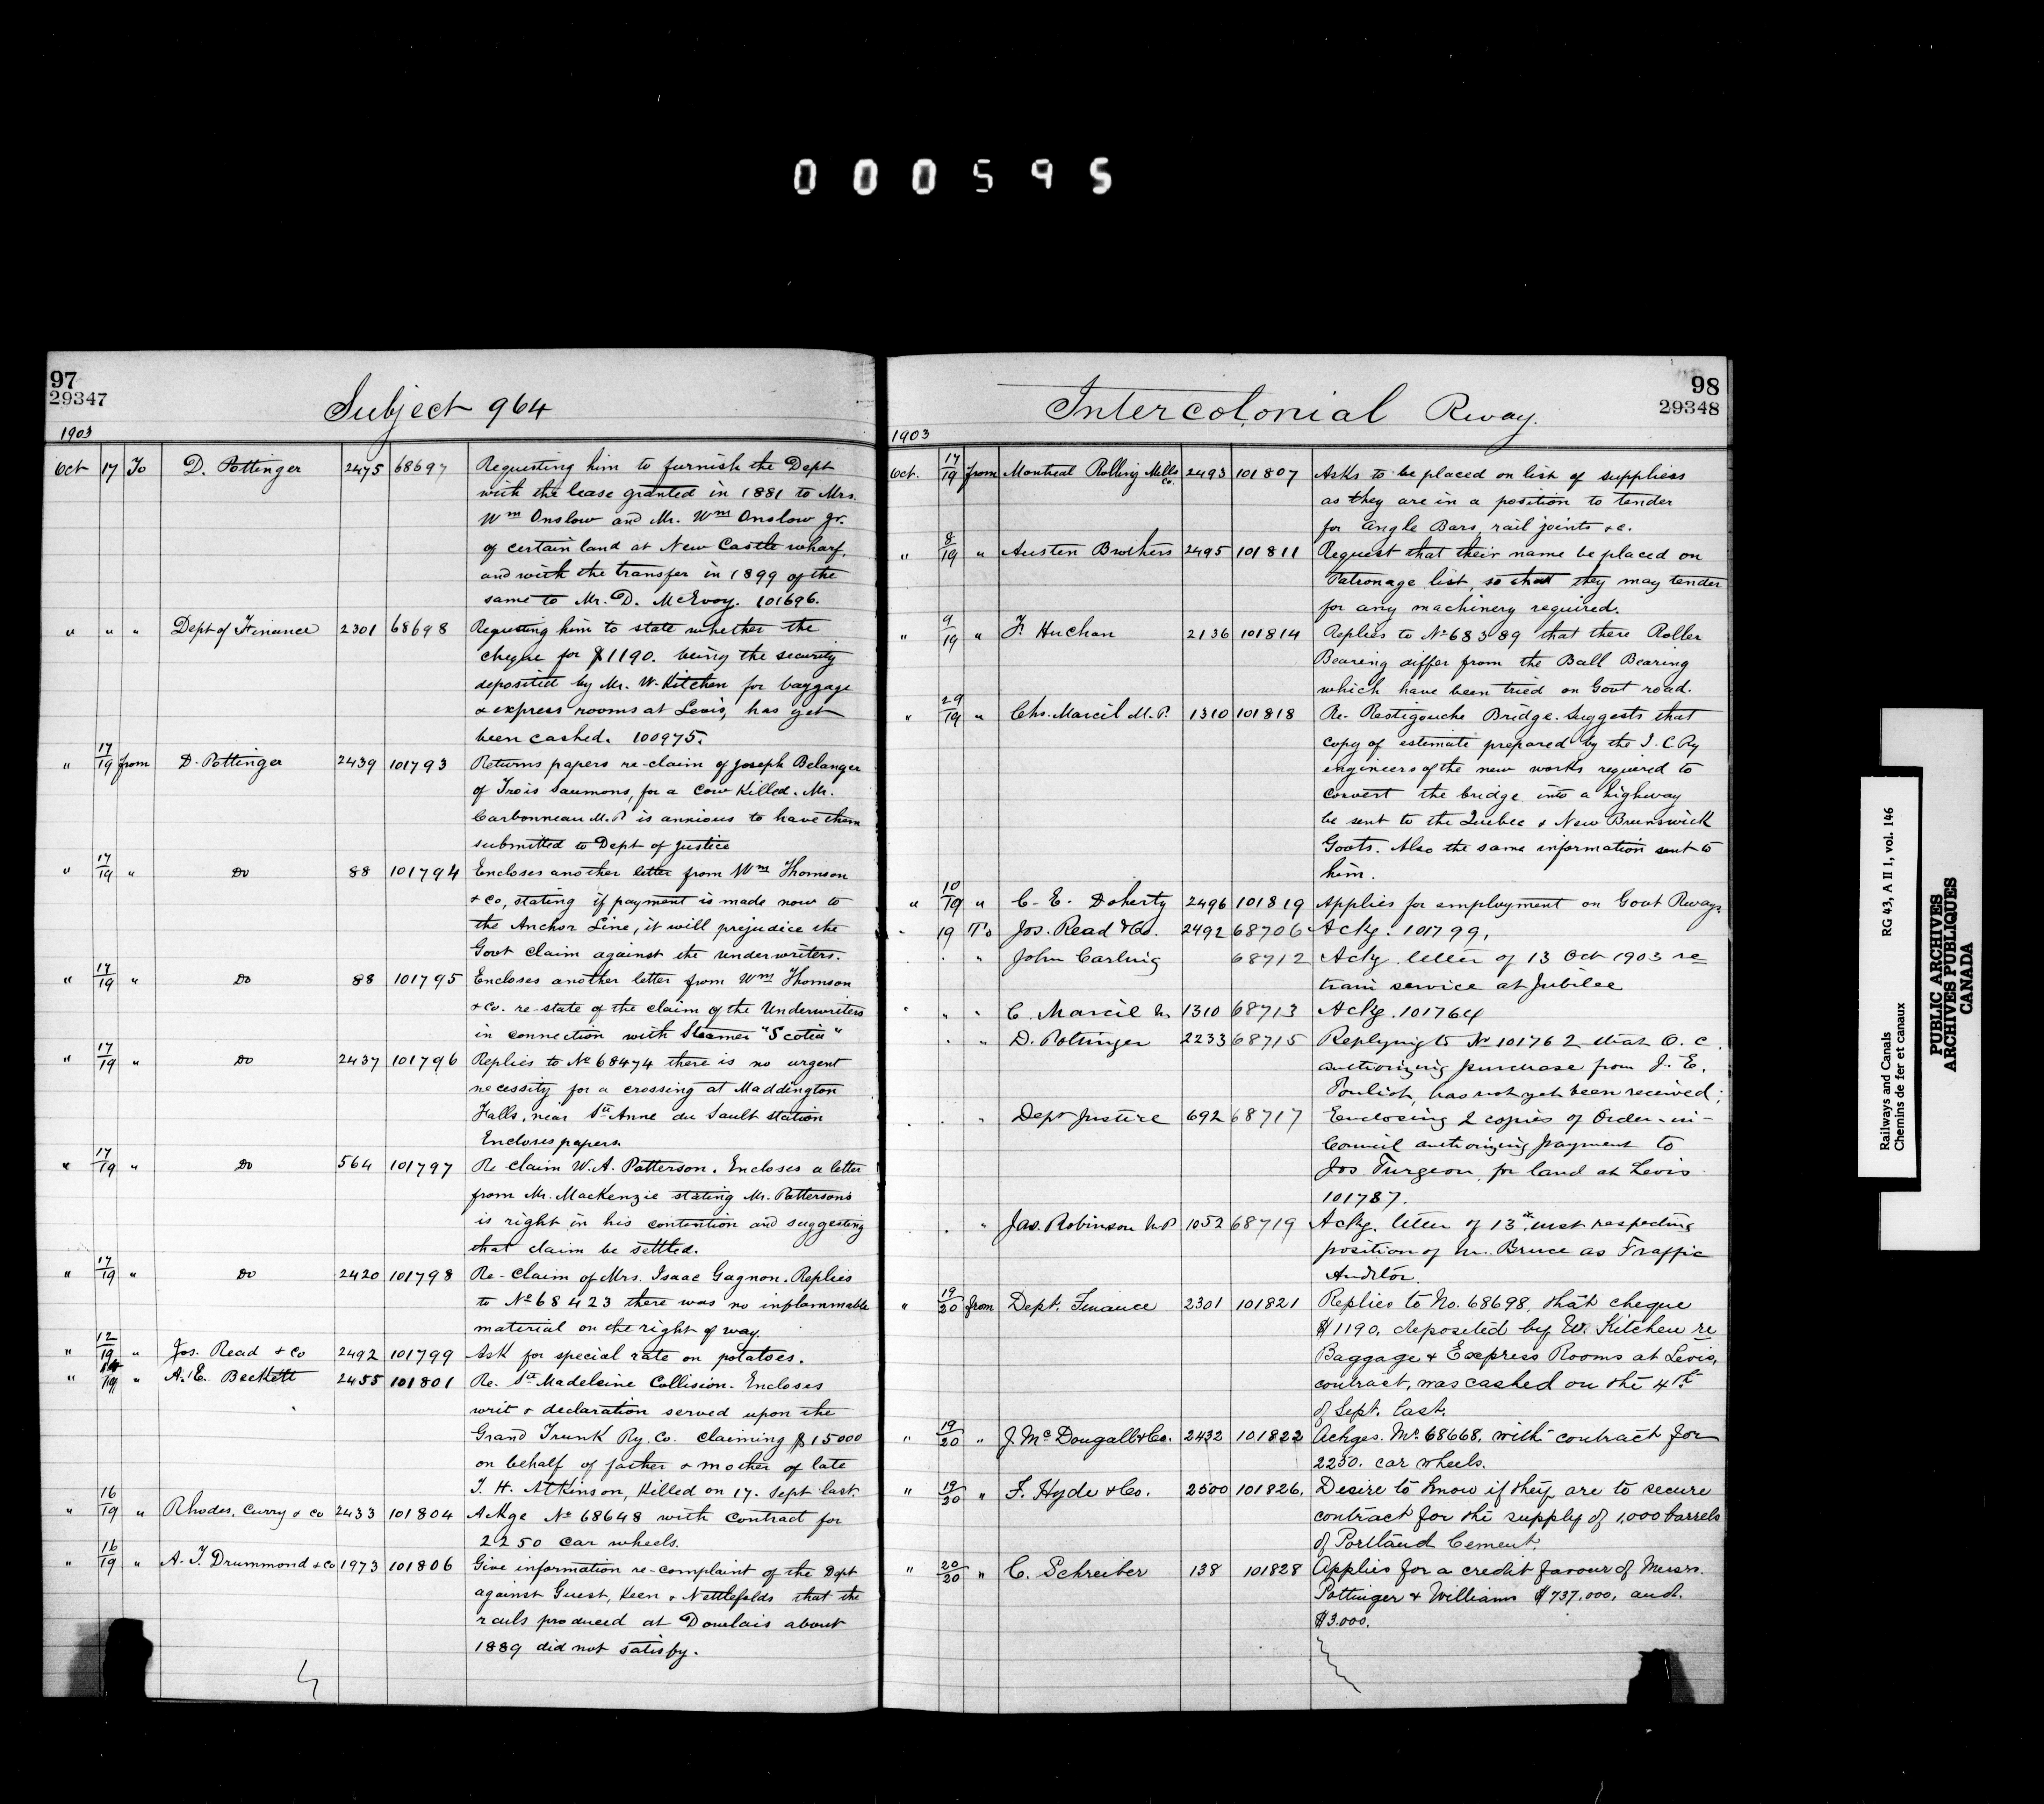 000595
97
29347
Subject 964
1903
Oct 17 To D. Pottinger 2475 68697 Requesting him to furnish the Dept
with the lease granted in 1881 to Mrs.
Wm Onslow and Mr. Wm Onslow Jr.
of certain land at New Castle wharf,
and with the transfer in 1899 of the
same to Mr. D. McEvoy. 101696.
" " " Dept of Finance 2301 68698 Requesting him to state whether the
cheque for $1190. being the security
deposited by Mr. W. Kitchen for baggage
& express rooms at Levis, has yet
been cashed. 100975.
" 17/19 from D. Pottinger 2439 101793 Returns papers re-claim of Joseph Belanger
of Trois Saumons, for a Cow Killed. Mr.
Carbonneau M.P. is anxious to have them
submitted to Dept of Justice
" 17/19 " Do 88 101794 Encloses another letter from Wm Thomson
& Co, stating if payment is made now to
the Anchor Line, it will prejudice the
Govt claim against the underwriters.
" 17/19 " Do 88 101795 Encloses another letter from Wm Thomson
& Co. re-state of the claim of the Underwriters
in connection with Steamer "Scotia"
" 17/19 " Do 2437 101796 Replies to No 68474 there is no urgent
necessity for a crossing at Maddington
Falls, near Ste Anne du Sault station
Encloses papers.
" 17/19 " Do 564 101797 Re claim W. A. Patterson. Encloses a letter
from Mr. MacKenzie stating Mr. Pattersons
is right in his contention and suggesting
that claim be settled.
" 17/19 " Do 2420 101798 Re-Claim of Mrs. Isaac Gagnon. Replies
to No 68423 there was no inflammable
material on the right of way.
" 12/19 " Jos. Read & Co 2492 101799 Ask for special rate on potatoes.
" 14/19 " A. E. Beckett 2455 101801 Re. Ste Madeleine Collision. Encloses
writ & declaration served upon the
Grand Trunk Ry. Co. claiming $15000
on behalf of father & mother of late
T. H. Atkinson, Killed on 17. Sept last.
" 16/19 " Rhodes, Curry & Co 2433 101804 Ackge No 68648 with contract for
2250 car wheels.
" 16/19 " A. T. Drummond & Co 1973 101806 Give information re-complaint of the Dept
against Guest, Keen & Nettlefolds that the
rails produced at Dowlais about
1889 did not satisfy.
98
29348
Intercolonial Rway.
1903
Oct. 17/19 from Montreal Rolling Mills Co. 2493 101807 Asks to be placed on list of suppliers
as they are in a position to tender
for Angle Bars, rail joints &c.
" 8/19 " Austen Brothers 2495 101811 Request that their name be placed on
Patronage list, so that they may tender
for any machinery required.
" 9/19 " F. Huchan 2136 101814 Replies to No 68389 that there Roller
Bearing differ from the Ball Bearing
which have been tried on Govt road.
" 29/19 " Chs. Marcil M.P. 1310 101818 Re-Restigouche Bridge. Suggests that
copy of estimate prepared by the I.C.Ry
engineers of the new works required to
convert the bridge into a highway
be sent to the Quebec & New Brunswick
Govts. Also the same information sent to
him.
" 10/19 " C. E. Doherty 2496 101819 Applies for employment on Govt Rways.
" 19 To Jos. Read & Co. 2492 68706 Ackg. 101799.
" " John Carling 68712 Ackg letter of 13 Oct 1903 re
train service at Jubilee
" " " C. Marcil M. 1310 68713 Ackg. 101764
" " D. Pottinger 2233 68715 Replying to No 101762 that O. C.
authorizing purchase from J. E.
Pouliot, has not yet been received;
" " Dept Justice 692 68717 Enclosing 2 copies of Order-in-
Council authorizing payment to
Jos Turgeon, for land at Levis
101787.
" " Jas. Robinson M.P 1052 68719 Ackg. letter of 13th inst respecting
position of Mr. Bruce as Traffic
Auditor.
" 19/20 from Dept. Finance 2301 101821 Replies to No. 68698, that cheque
$1190. deposited by W. Kitchen re
Baggage & Express Rooms at Levis,
contract, was cashed on the 4th
of Sept. last.
" 19/20 " J. McDougall & Co. 2432 101822 Ackges. No. 68668. with contract for
2250. car wheels.
" 19/20 " F. Hyde & Co. 2500 101826. Desire to know if they are to secure
contract for the supply of 1,000 barrels
of Portland Cement.
" 20/20 " C. Schreiber 138 101828 Applies for a credit favour of Messrs.
Pottinger & Williams $737,000, and
$3.000.
Railways and Canals RG 43, A II 1, vol. 146
Chemins de fer et canaux
PUBLIC ARCHIVES
ARCHIVES PUBLIQUES
CANADA